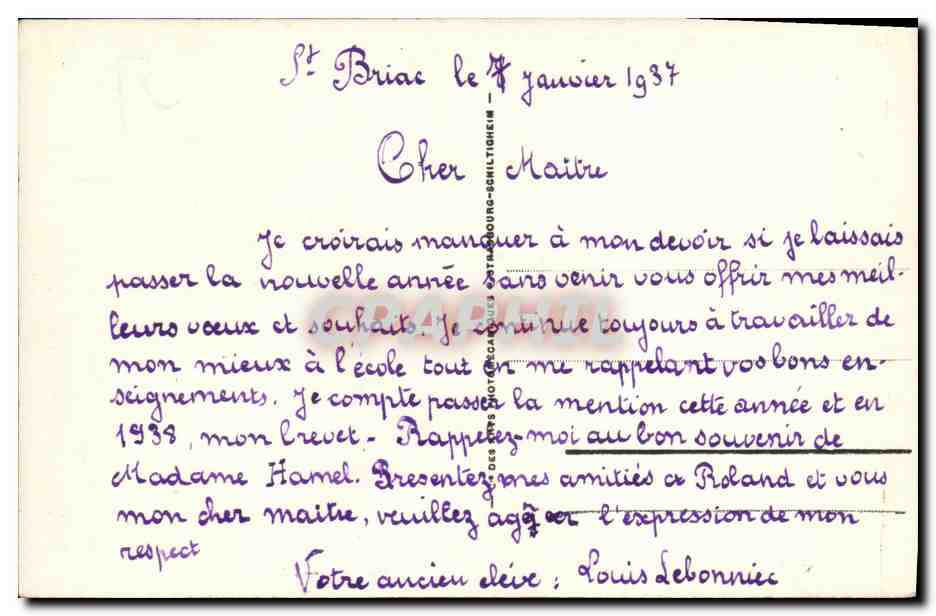 St Briac le 7 janvier 1937
Cher Maître
Je croirais manquer à mon devoir si je laissais
passer la nouvelle année sans venir vous offrir mes meil-
leurs vœux et souhaits. Je continue toujours à travailler de
mon mieux à l'école tout en me rappelant vos bons en-
seignements. Je compte passer la mention cette année et en
1938, mon brevet - Rappelez-moi au bon souvenir de
Madame Hamel. Presentez mes amitiés à Roland et vous
mon cher maitre, veuillez agréer l'expression de mon
respect
Votre ancien elève : Louis Lebonniec
STRASBOURG-SCHILTIGHEIM
CPAPHIL